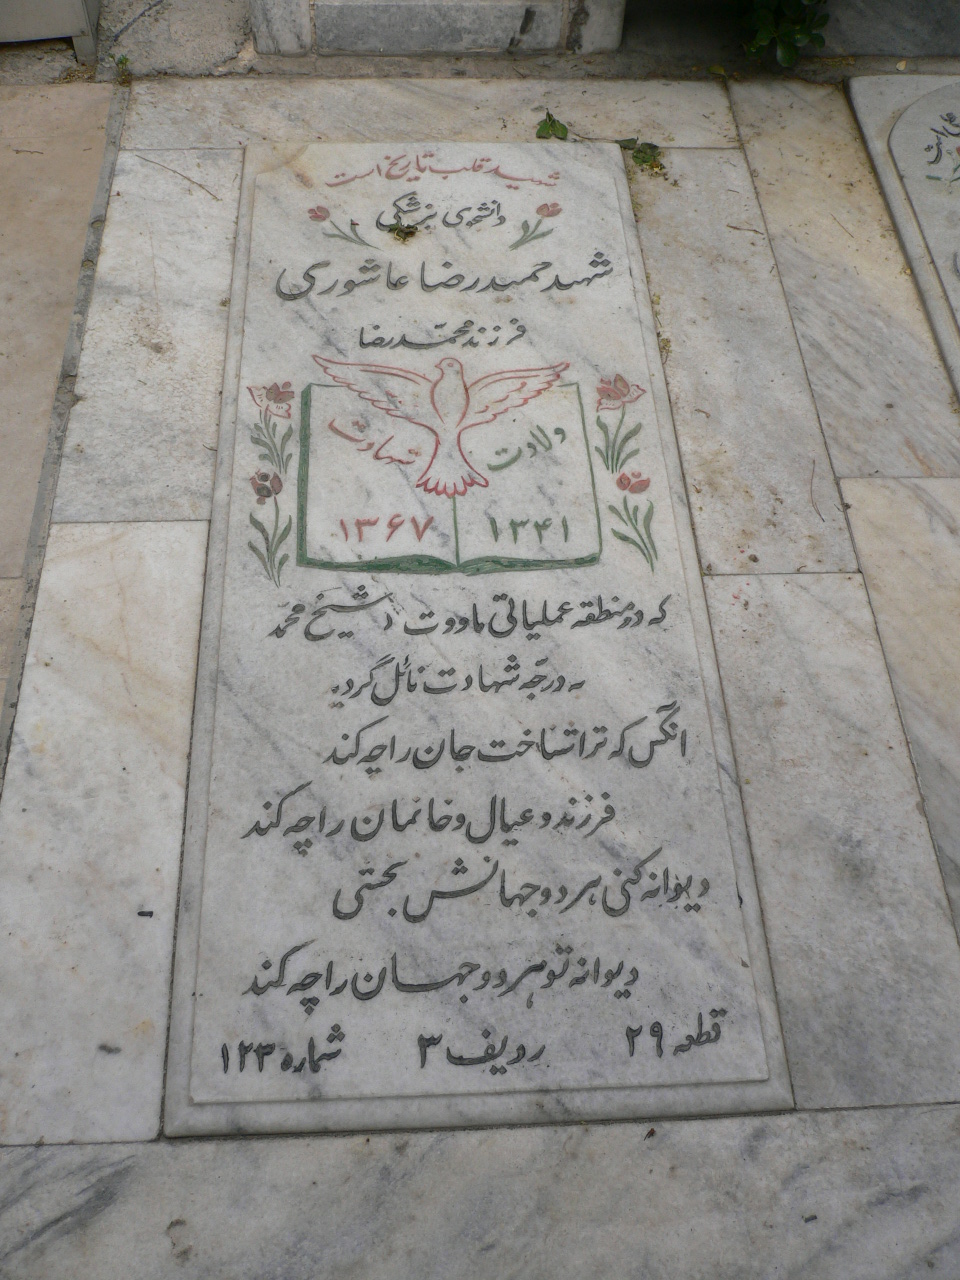 شهید قلب تاریخ است
دانشجوی پزشکی
شهید حمیدرضا عاشوری
فرزند محمّدرضا
ولادت شهادت
۱۳۴۱ ۱۳۶۷
که در منطقه عملیاتی ماووت شیخ محمّد
به درجه شهادت نائل گردید
آنکس که ترا شناخت جان را چه کند
فرزند و عیال و خانمان را چه کند
دیوانه کنی هر دو جهانش بخشی
دیوانه تو هر دو جهان را چه کند
قطعه ۲۹ ردیف ۳ شماره ۱۲۳